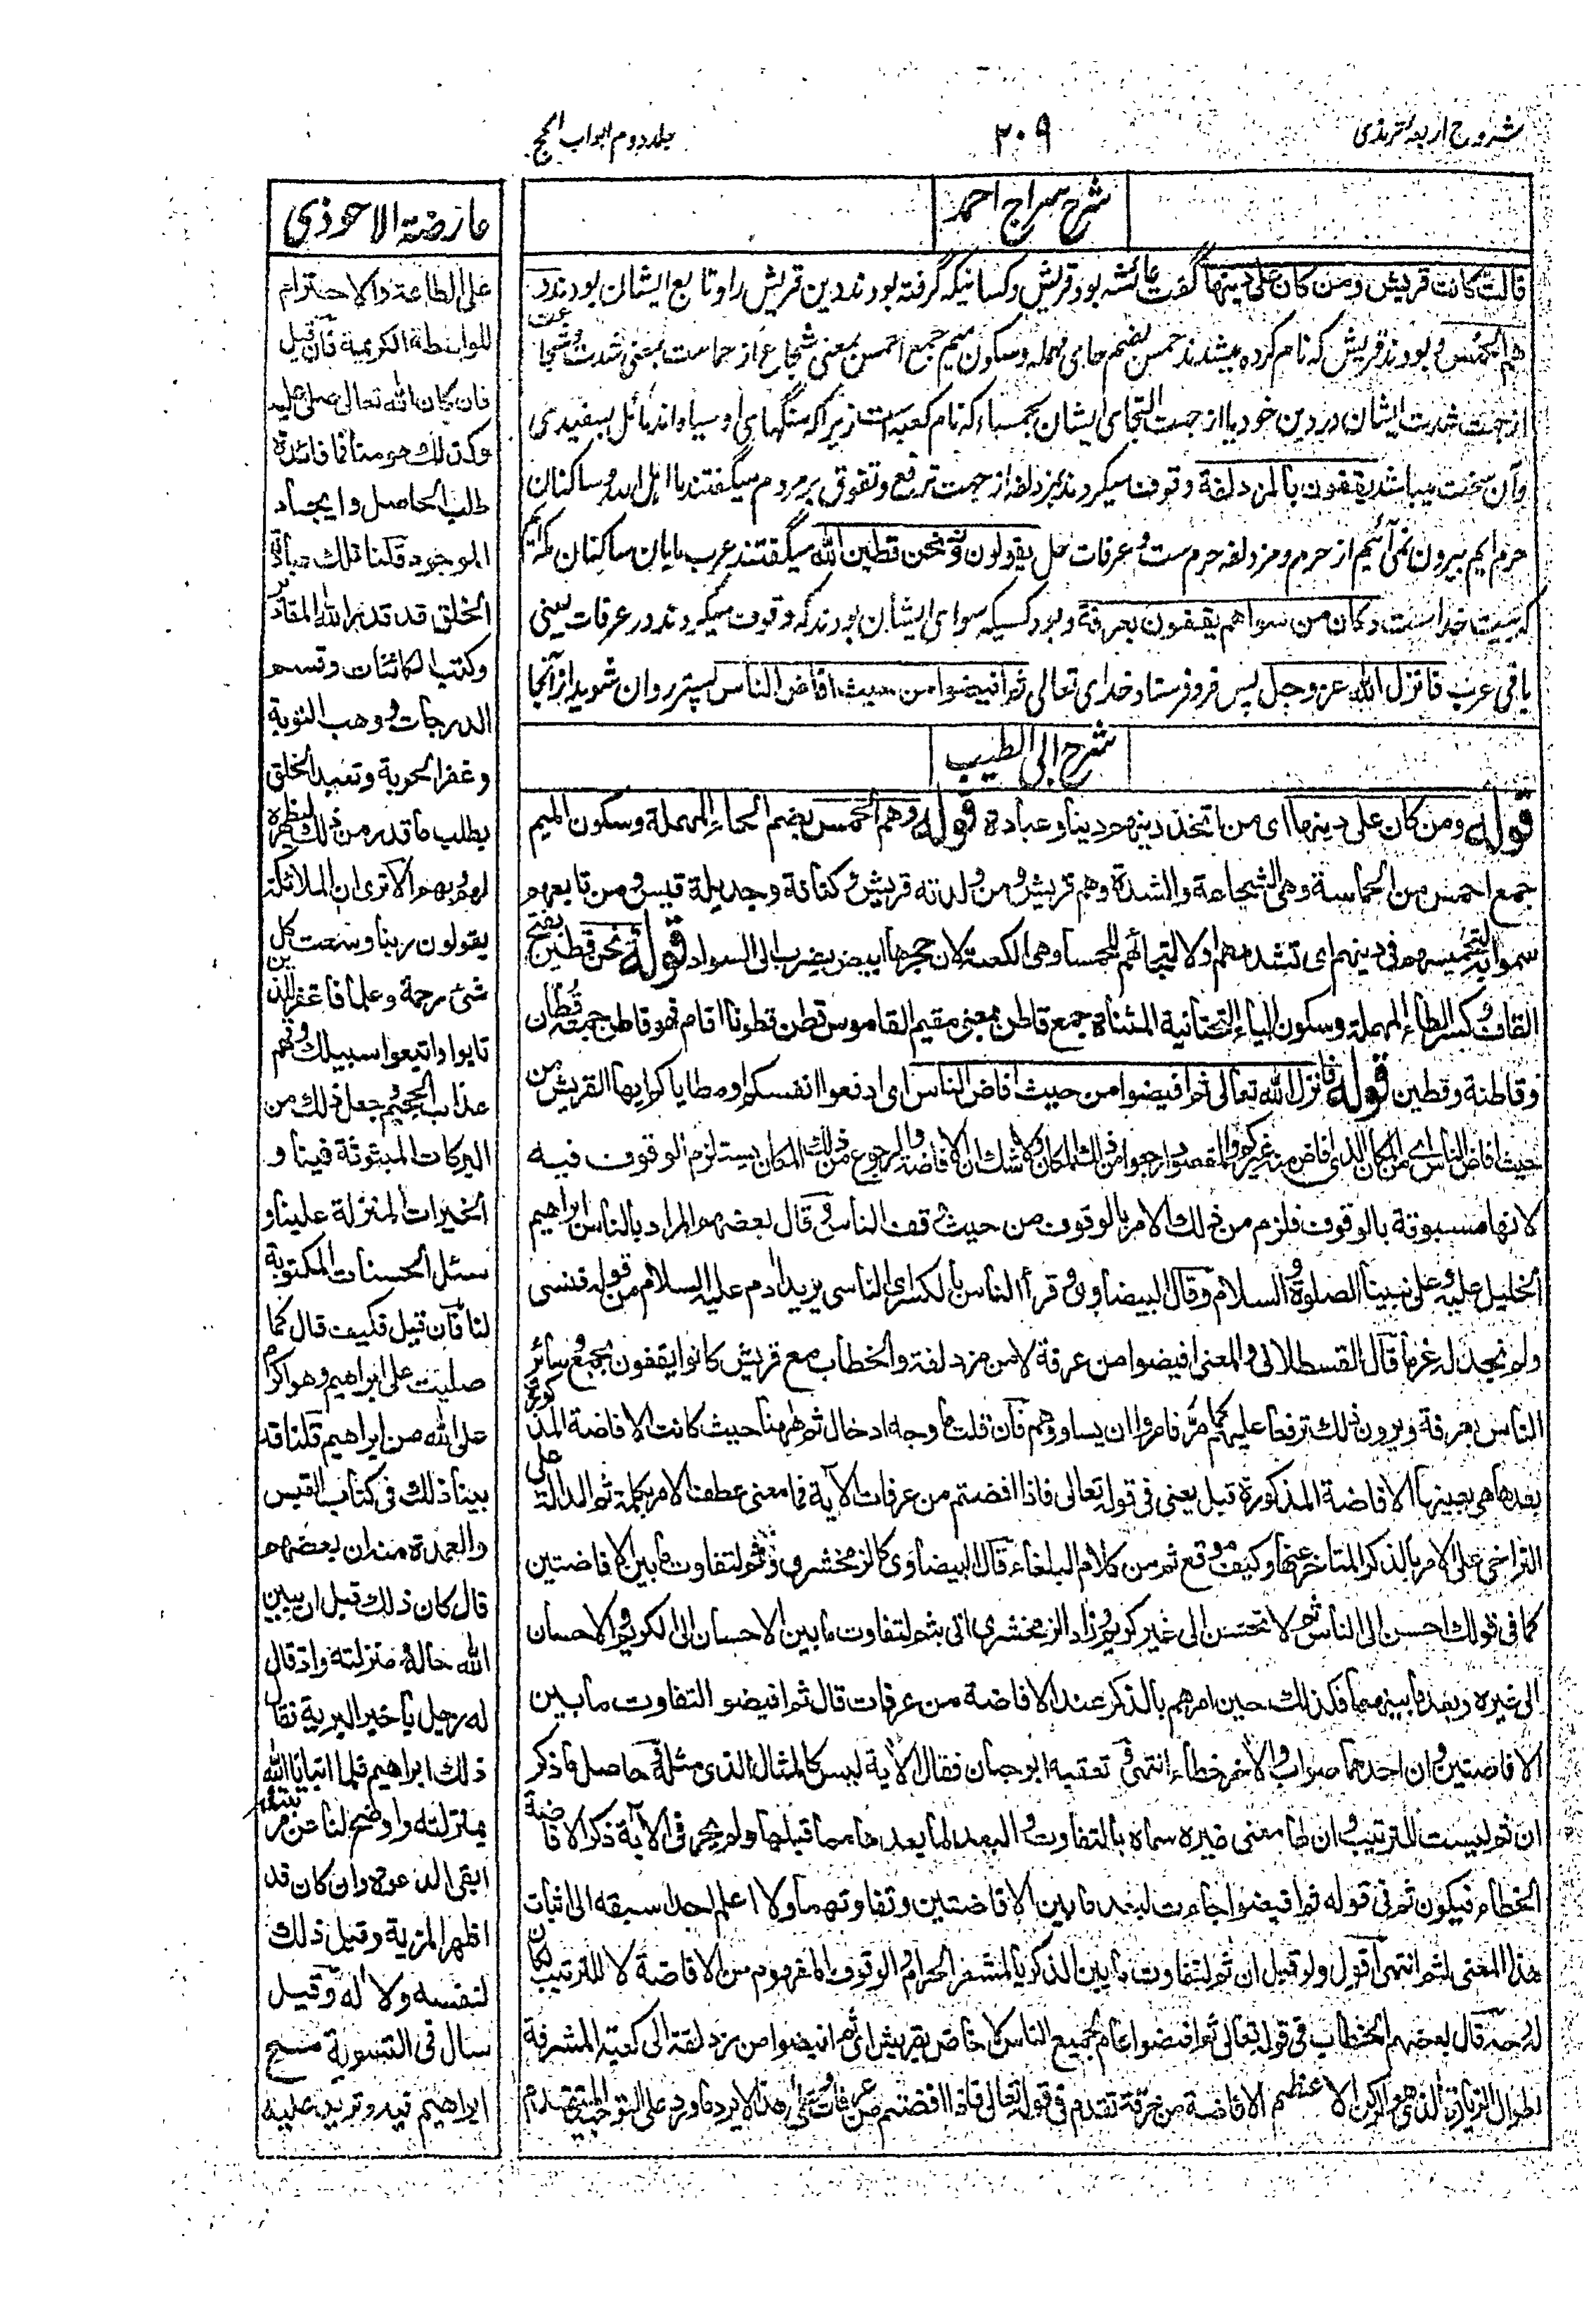 شروح اربعہ ترمذی
۳۰۹
جلد دوم ابواب الحج
شرح سراج احمد
قالت کانت قریش ومن کان علی دینها گفت عائشہ بود قریش وکسانیکہ گرفتہ بودند دین قریش را وتابع ایشان بودند و
هم الحمس و بودند قریش کہ نام کردہ میشدند حمس بضم حای مہملہ وسکون میم جمع احمس بمعنی شجاع از حماست بمعنی شدت و شجاعت
از جہت شدت ایشان در دین خود یا از جہت التجای ایشان بحمساء کہ نام کعبہ است زیرا کہ سنگہای او سیاہ اند مائل بسفیدی
وآن سخت میباشد یقفون بالمزدلفة وقوف میکردند بمزدلفہ از جہت ترفع وتفوق بر مردم میگفتند ما اہل اللہ و ساکنان
حرم ایم بیرون نمی آئیم از حرم ومزدلفہ حرم ست و عرفات حل یقولون نحن قطین الله میگفتند عرب مایان ساکنان مکہ ایم
کہ بیت خداست وکان من سواهم یقفون بعرفة وبود کسیکہ سوای ایشان بودند کہ وقوف میکردند در عرفات یعنی
باقی عرب فانزل الله عز وجل پس فرو فرستاد خدای تعالی ثم افیضوا من حیث افاض الناس پستر روان شوید از آنجا
شرح ابی الطیب
قوله ومن کان علی دینها ای من اتخذ دینهم دینا وعبادة قوله وهم الحمس بضم الحاء المهملة وسکون المیم
جمع احمس من الحماسة وهی الشجاعة والشدة وهم قریش ومن ولدته قریش و کنانة وجدیلة قیس و من تابعهم
سموا به لتحمسهم فی دینهم ای تشددهم او لالتجائهم للحمسا وهی الکعبة لان حجرها ابیض یضرب الی السواد قوله نحن قطین بفتح
القاف و کسر الطاء المهملة وسکون الیاء التحتانیة المثناة جمع قاطن بمعنی مقیم القاموس قطن قطونا اقام فهو قاطن جمعه قطان
و قاطنة وقطین قوله فانزل الله تعالی ثم افیضوا من حیث افاض الناس ای ادفعوا انفسکم او مطایاکم ایها القریش من
حیث افاض الناس ای من المکان الذی افاض منه غیرکم والمقصود ارجعوا من ذلک المکان ولا شک ان الافاضة والرجوع من ذلک المکان یستلزم الوقوف فیه
لانها مسبوقة بالوقوف فلزم من ذلک الامر بالوقوف من حیث وقف الناس و قال بعضهم المراد بالناس ابراهیم
الخلیل علیه وعلی نبینا الصلوة والسلام وقال البیضاوی و قرأ الناس بالکسر ای الناسی یرید ادم علیه السلام من قوله فنسی
ولم نجد له عزما قال القسطلانی والمعنی افیضوا من عرفة لا من مزدلفة والخطاب مع قریش کانوا یقفون بجمع و سائر
الناس بعرفة ویرون ذلک ترفعا علیهم کما مر فامروا ان یساووهم فان قلت ما وجه ادخال ثم ههنا حیث کانت الافاضة المذکورة
بعدها هی بعینها الافاضة المذکورة قبل یعنی فی قوله تعالی فاذا افضتم من عرفات الآیة فما معنی عطف الامر بکلمة ثم الدالة علی
التراخی علی الامر بالذکر المتاخر عنها وکیف موقع ثم من کلام البلغاء قال البیضاوی کالزمخشری و ثم لتفاوت ما بین الافاضتین
کما فی قولک احسن الی الناس ثم لا تحسن الی غیر کریم زاد الزمخشری اتی بثم لتفاوت ما بین الاحسان الی الکریم والاحسان
الی غیره وبعد ما بینهما فکذلک حین امرهم بالذکر عند الافاضة من عرفات قال ثم افیضوا لتفاوت ما بین
الافاضتین و ان احدهما صواب والاخر خطاء انتهی و تعقبه ابو حیان فقال الآیة لیس کالمثال الذی مثله و حاصل ما ذکر
ان ثم لیست للترتیب و ان لها معنی غیره سماه بالتفاوت والبعد لما بعدها مما قبلها ولم یجر فی الآیة ذکر الافاضة
الخطاء فیکون ثم فی قوله ثم افیضوا جاءت لبعد ما بین الافاضتین وتفاوتهما ولا اعلم احدا سبقه الی اثبات
هذا المعنی لثم انتهی اقول ولو قیل ان ثم لتفاوت ما بین الذکر بالمشعر الحرام والوقوف المفهوم من الافاضة لا للترتیب لکان
له وجه قال بعضهم الخطاب فی قوله تعالی ثم افیضوا عام لجمیع الناس لا خاص بقریش ای ثم افیضوا من مزدلفة الی کعبة المشرفة
لطواف الزیارة الذی هو الرکن الاعظم الافاضة من عرفة تقدم فی قوله تعالی فاذا افضتم من عرفات وعلی هذا لا یرد ما ورد علی التوجیه المتقدم
عارضة الاحوذی
علی الطاعة والاحترام
للواسطة الکریمة فان قیل
فان کان الله تعالی صلی علیه
وکذلک هو منا فما فائدة
طلب الحاصل وایجاد
الموجود قلنا تلک عبادة
الخلق قد قدر الله المقادیر
وکتب الکائنات وقسم
الدرجات و وهب التوبة
وغفر الحوبة وتعبد الخلق
بطلب ما قدر من ذلک لنظره
لهم و بهم الا تری ان الملائکة
یقولون ربنا وسعت کل
شئ رحمة وعلما فاغفر للذین
تابوا واتبعوا سبیلک وقهم
عذاب الجحیم و جعل ذلک من
البرکات المبثوثة فینا و
الخیرات المنزلة علینا و
سئل الحسنات المکتوبة
لنا فان قیل فکیف قال کما
صلیت علی ابراهیم وهو اکرم
علی الله من ابراهیم قلنا قد
بینا ذلک فی کتاب القبس
والعمدة منه ان بعضهم
قال کان ذلک قبل ان یبین
الله حاله و منزلته واذ قال
له رجل یا خیر البریة فقال
ذلک ابراهیم فلما انبانا الله
بمنزلته واوضح لنا عن مرتبته
ابقی الدعوة وان کان قد
اظهر المزیة وقیل ذلک
لنفسه ولآله وقیل
سال فی التسویة مع
ابراهیم فیه ویزید علیه